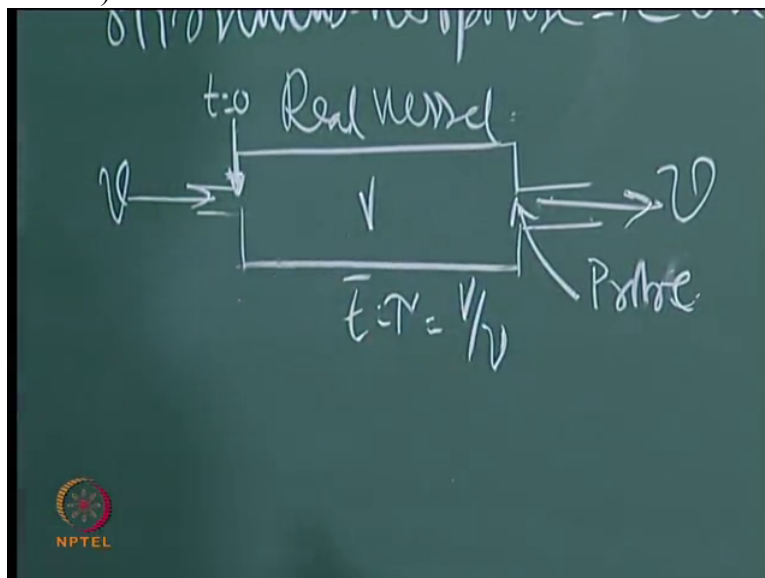 t=0 Real Vessel.
v V v
Probe
t̄ = τ = V/v
NPTEL